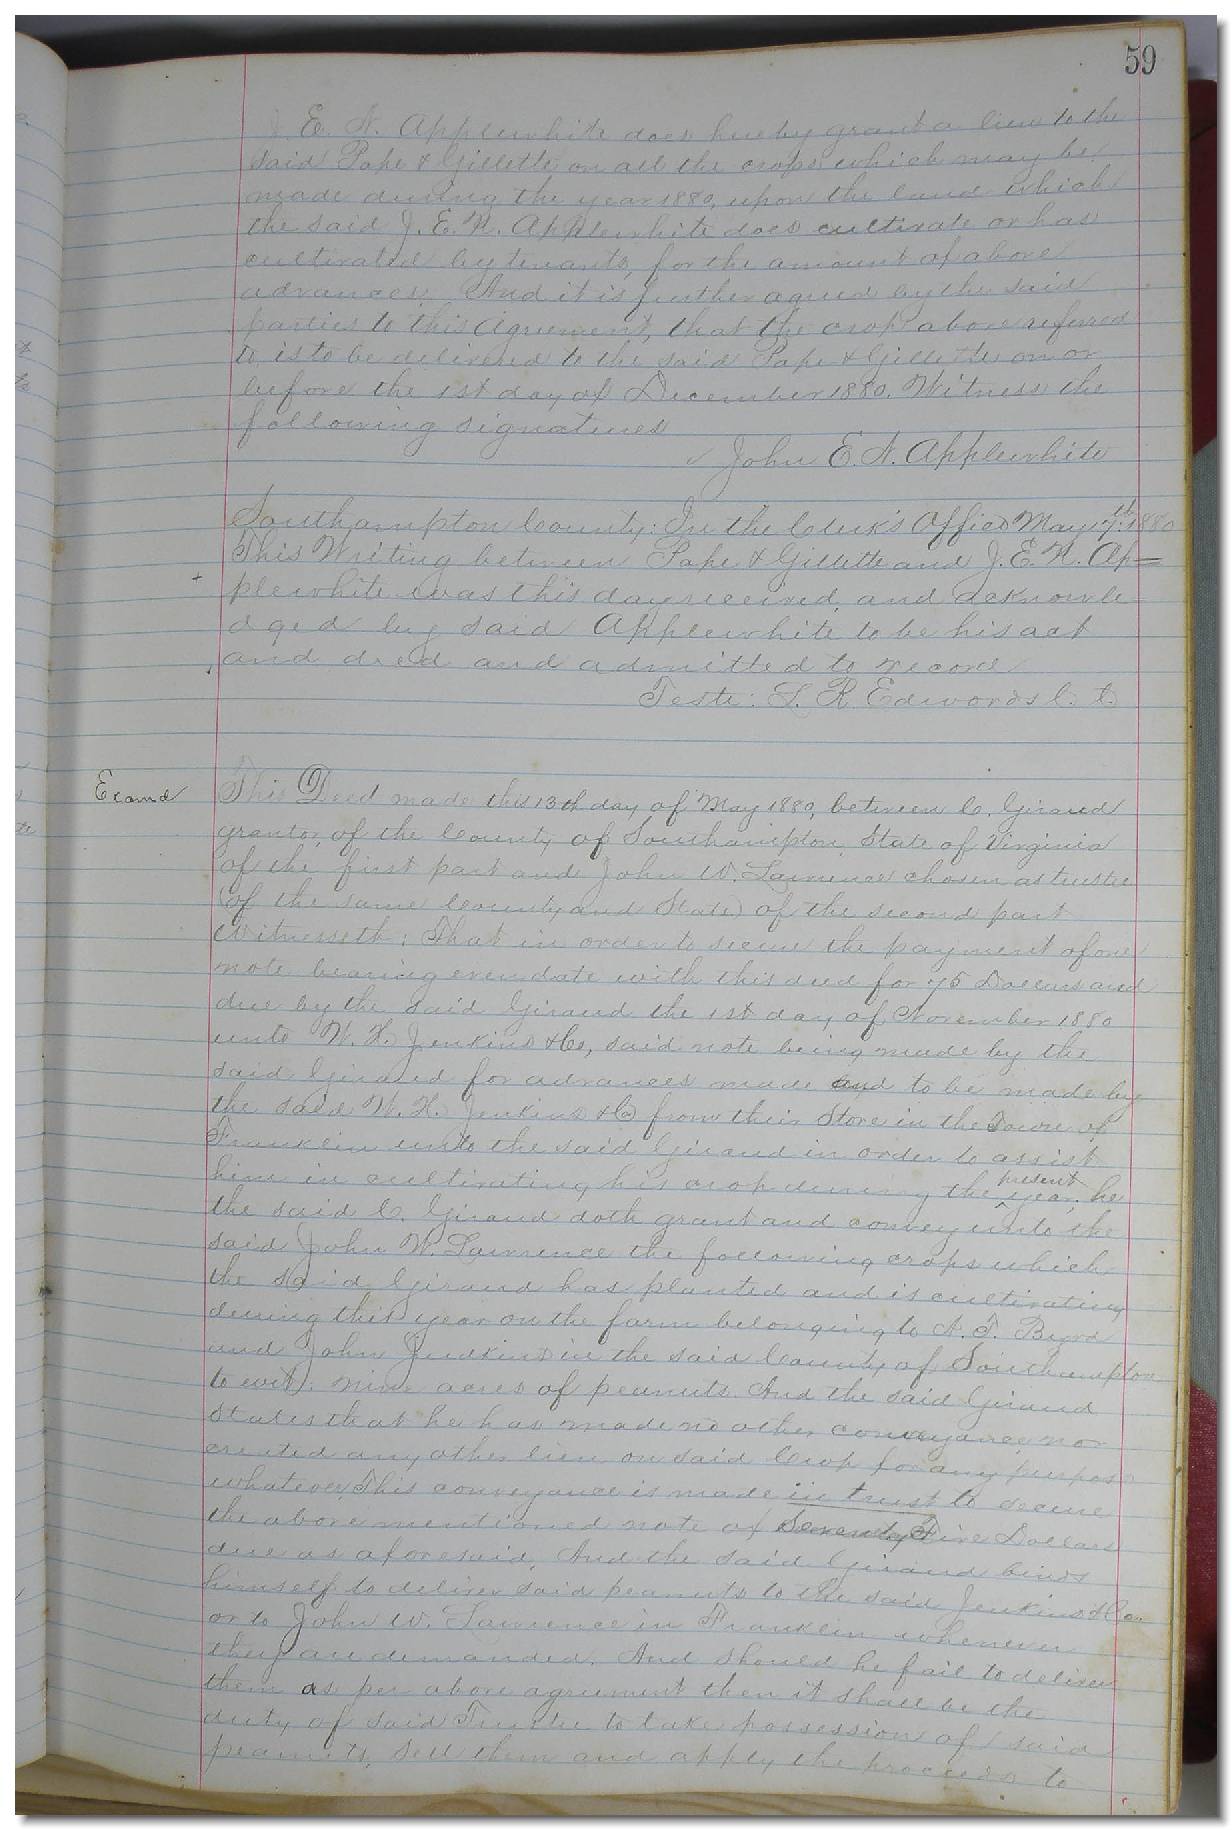 59
J. E. N. Applewhite does hereby grant a lien to the
said Pope & Gillette on all the crops which may be
made during the year 1880, upon the land which
the said J. E. N. Applewhite does cultivate or has
cultivated by tenants, for the amount of above
advances. And it is further agreed by the said
parties to this Agreement, that the crop above referred
to is to be delivered to the said Pope & Gillette on or
before the 1st day of December 1880. Witness the
following signatures
John E. N. Applewhite
Southampton County: In the Clerk's Office May 17th 1880
This Writing between Pope & Gillette and J. E. N. Ap=
plewhite was this day received and acknowle
dged by said Applewhite to be his act
and deed and admitted to record
Teste: L. R. Edwards C. C.
Examd
This Deed made this 13th day of May 1880, between C. Giraud
grantor, of the County of Southampton State of Virginia
of the first part and John W. Lawrence chosen as trustee
(of the same County and State) of the second part
Witnesseth: That in order to secure the payment of one
note bearing even date with this deed for 75 Dollars and
due by the said Giraud the 1st day of November 1880
unto W. H. Jenkins & Co, said note being made by the
said Giraud for advances made and to be made by
the said W. H. Jenkins & Co from their Store in the Town of
Franklin unto the said Giraud in order to assist
him in cultivating his crop during the present year, he
the said C. Giraud doth grant and convey unto the
said John W. Lawrence the following crops which
the said Giraud has planted and is cultivating
during this year on the farm belonging to A. T. Byrd
and John Judkins in the said County of Southampton
to wit): nine acres of peanuts. And the said Giraud
States that he has made no other conveyance nor
created any other lien on said Crop for any purpose
whatever. This conveyance is made in trust to secure
the above mentioned note of Seventy Five Dollars
due as aforesaid. And the said Giraud binds
himself to deliver said peanuts to the said Jenkins & Co.
or to John W. Lawrence in Franklin whenever
they are demanded. And should he fail to deliver
them as per above agreement then it shall be the
duty of said Trustee to take possession of said
peanuts, sell them and apply the proceeds to